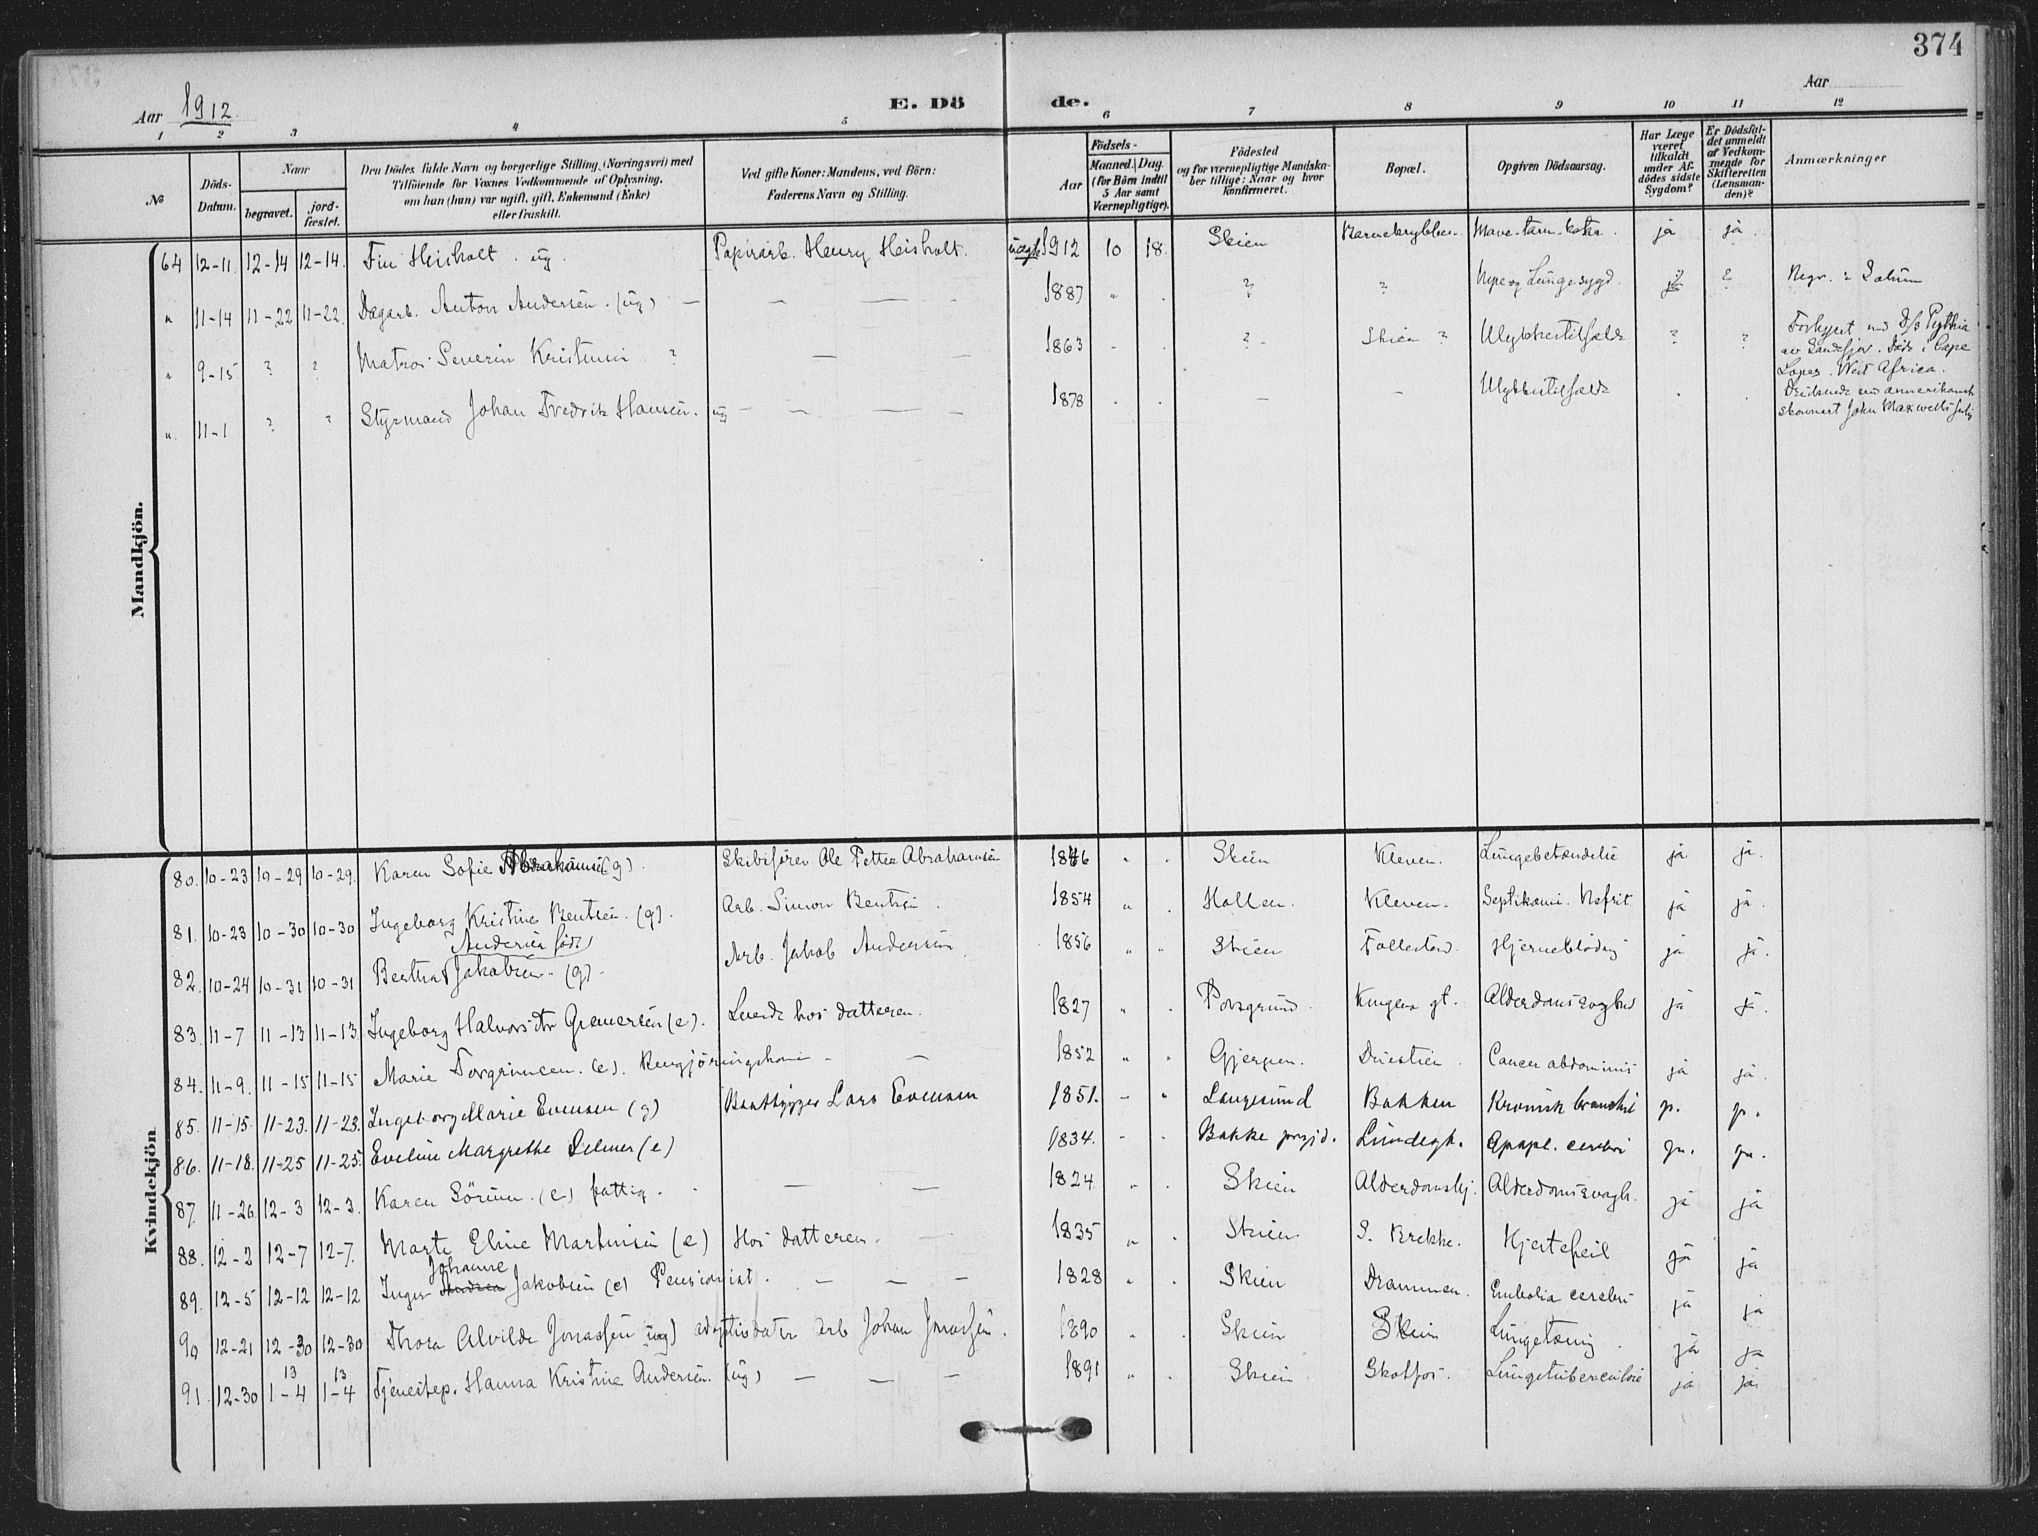 374
Aar 1912
E. Döde.
Aar
1 2 3 4 5 6 7 8 9 10 11 12
№
Döds-Datum.
Naar
begravet.
jord-fæstet.
Den Dödes fulde Navn og borgerlige Stilling (Næringsvei) med
Tilföiende for Voxnes Vedkommende af Oplysning,
om han (hun) var ugift, gift, Enkemand (Enke)
eller fraskilt.
Ved gifte Koner: Mandens, ved Börn:
Faderens Navn og Stilling.
Födsels-
Aar
Maaned. Dag.
(for Börn indtil
5 Aar samt
Værnepligtige).
Födested
og for værnepligtige Mandska-
ber tillige: Naar og hvor
konfirmeret.
Bopæl.
Opgiven Dödsaarsag.
Har Læge
været
tilkaldt
under Af-
dödes sidste
Sygdom?
Er Dödsfal-
det anmeldt
af Vedkom-
mende for
Skifteretten
(Lensman-
den)?
Anmærkninger
Mandkjön.
64 12-11 12-14 12-14. Fin Heisholt . ug. Papirarb. Henry Heisholt. 1912 10 18. Skien ja ja.
" 11-14 11-22 11-22 Dagarb. Anton Andersen. (ug) — — — — 1887 " . ? ? og Lungesygd. ?
" 9-15 ? ? Matros Severin ? — — 1863 . . ? Skien ? Ulykkestilfælde ? ? Forlyst med D/S Pythia
av Sandefjor. Döde i Cape
Lopez. West Africa.
" 11-1 ? " Styrmand Johan Fredrik Hansen. ug — — — — 1878 . . — — Ulykkestilfælde . . amerikansk
skonnert John Maxwells
Kvindekjön
80. 10-23 10-29 10-29. Karen Sofie Abrahamsen (g). Skibsförer Ole Petter Abrahamsen " . Skien Kleven. Lungebetændelse ja ja.
81. 10-23 10-30 10-30 Ingeborg Kristine Bentsen. (g). Arb. Simon Bentsen . 1854 " . Hollen. Kleven. Septikæmi. Nefrit ja ja.
Andersen födt
82. 10-24 10-31 10-31 Berthe Jakobsen. (g). Arb. Jakob Andersen 1856 " . Skien Follestad. Hjerneblödn. ja ja.
83. 11-7 11-13 11-13 Ingeborg Halvorsdtr (e). hos datteren. 1827 " . Porsgrund. Kongens gt. Alderdomssvaghed ja ja.
84. 11-9. 11-15 11-15 Marie Torgrimsen. (e). Rengjöringskone — — 1852 " . Gjerpen. Duestien . Cancer abdominis ja ja.
85. 11-15. 11-23. 11-23. Ingeborg Marie Evensen (g) Baatbygger Lars Evensen 1851. " . Langesund Bakken Kronisk bronchit ja. ja.
86. 11-18. 11-25 11-25. Eveline Margrethe (e) 1834. " . Bakke prgjd. Lundegt. Apopl. cerebri ja. ja.
87. 11-26. 12-3 12-3. Karen Sörum. (e) fattig. . — — 1824 " . Skien Alderdomshj. Alderdomssvagh. ja ja
88. 12-2 12-7 12-7. Marte Eline Martinsen (e) Hos datteren. — 1835 " . Skien S. Brekke. Hjertefeil ja ja
Johanne
89. 12-5 12-12 12-12 Inger Andrea Jakobsen (e) Pensionist. — — — 1828 " . Skien Drammen. Embolia cerebri ja ja
90 12-21 12-30 12-30 Thora Alvilde Jonassen (ug) adoptivdater arb Johan Jonassen. 1890 " . Skien Skien Lungetæring . ja ja
13 13
91. 12-30 1-4 1-4 Tjenestep. Hanna Kristine Andersen. (ug) — — — 1891 " . Skien Skotfos. Lungetuberculose ja ja.